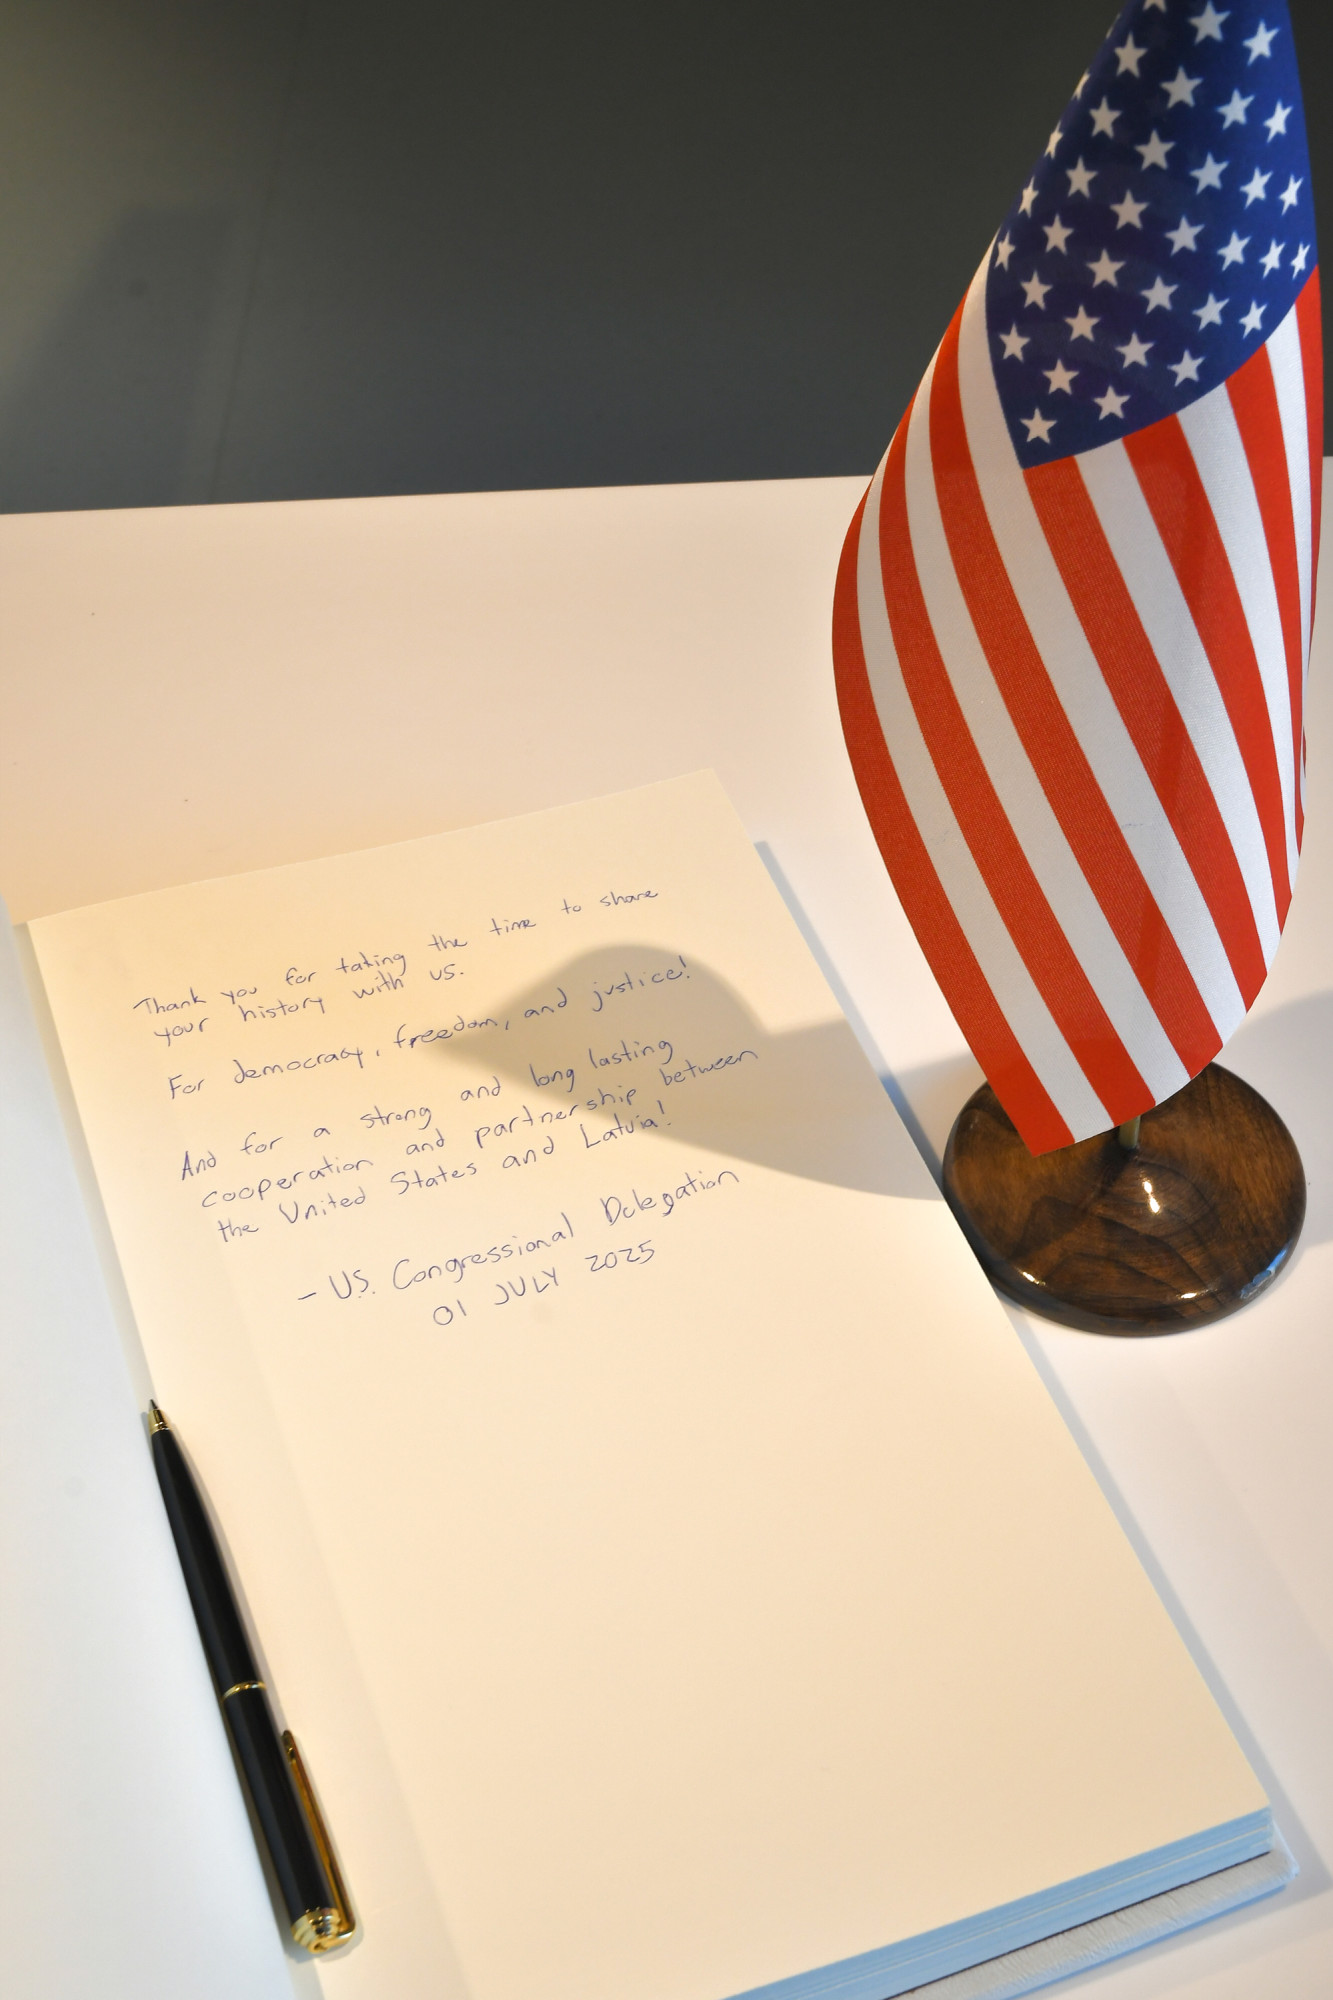 Thank you for taking the time to share
your history with us.
For democracy, freedom, and justice!
And for a strong and long lasting
cooperation and partnership between
the United States and Latvia!
- U.S. Congressional Delegation
01 JULY 2025